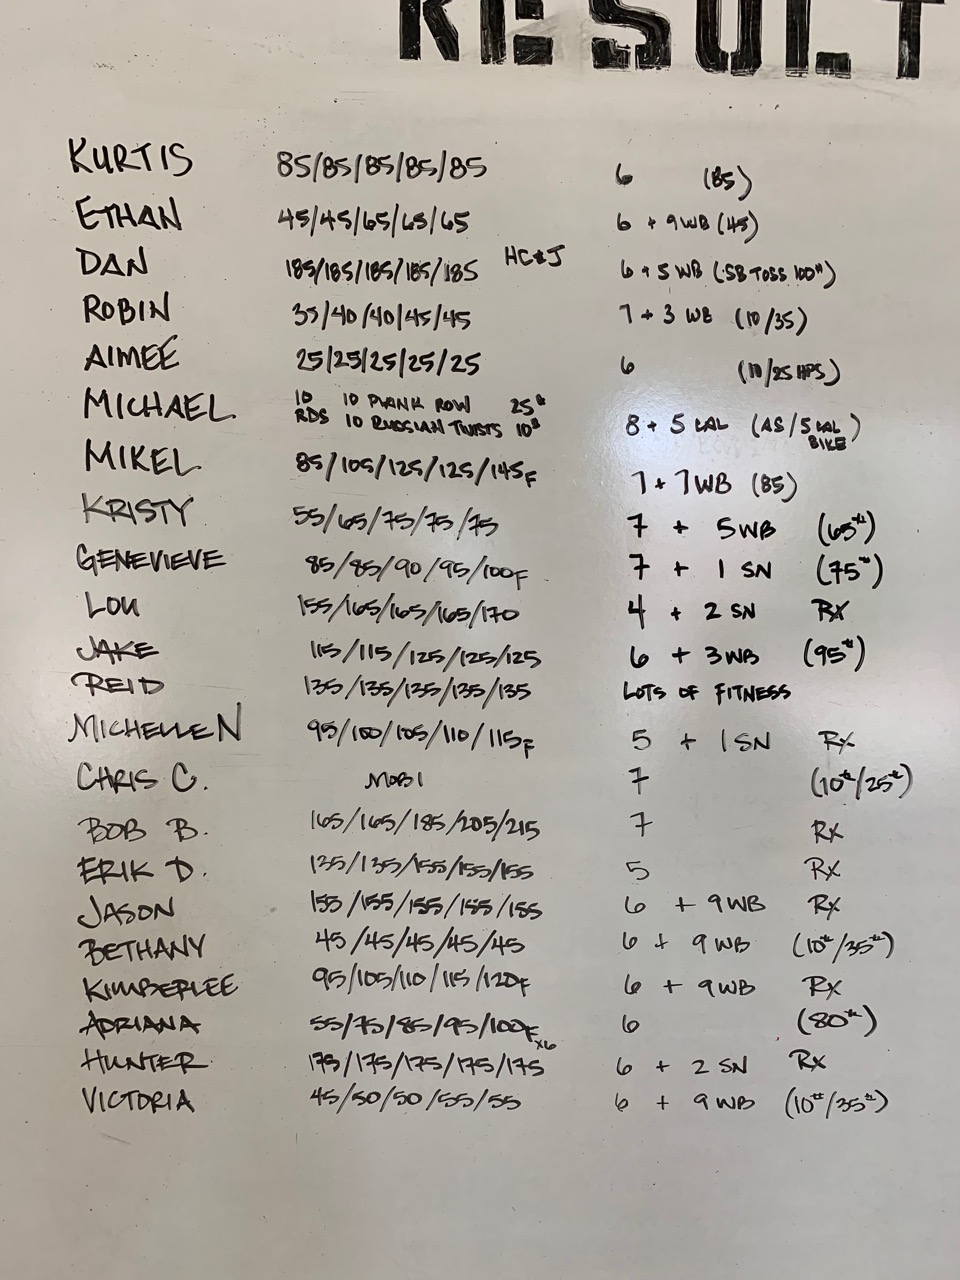 RESULT
KURTIS 85/85/85/85/85 6 (85)
ETHAN 45/45/65/65/65 6 + 9 WB (45)
DAN 185/185/185/185/185 HC&J 6 + 5 WB (SB TOSS 100#)
ROBIN 35/40/40/45/45 7 + 3 WB (10/35)
AIMEE 25/25/25/25/25 6 (10/25 HPS)
MICHAEL 10 RDS 10 PLANK ROW 25# 10 RUSSIAN TWISTS 10# 8 + 5 CAL (AS/5 CAL BIKE)
MIKEL 85/105/125/125/145F 7 + 7 WB (85)
KRISTY 55/65/75/75/75 7 + 5 WB (65#)
GENEVIEVE 85/85/90/95/100F 7 + 1 SN (75#)
LOU 155/165/165/165/170 4 + 2 SN RX
JAKE 115/115/125/125/125 6 + 3 WB (95#)
REID 135/135/135/135/135 LOTS OF FITNESS
MICHELLE N 95/100/105/110/115F 5 + 1 SN RX
CHRIS C. MOBI 7 (10#/25#)
BOB B. 165/165/185/205/215 7 RX
ERIK D. 135/135/155/155/155 5 RX
JASON 155/155/155/155/155 6 + 9 WB RX
BETHANY 45/45/45/45/45 6 + 9 WB (10#/35#)
KIMBERLEE 95/105/110/115/120F 6 + 9 WB RX
ADRIANA 55/75/85/95/100F x6 6 (80#)
HUNTER 175/175/175/175/175 6 + 2 SN RX
VICTORIA 45/50/50/55/55 6 + 9 WB (10#/35#)